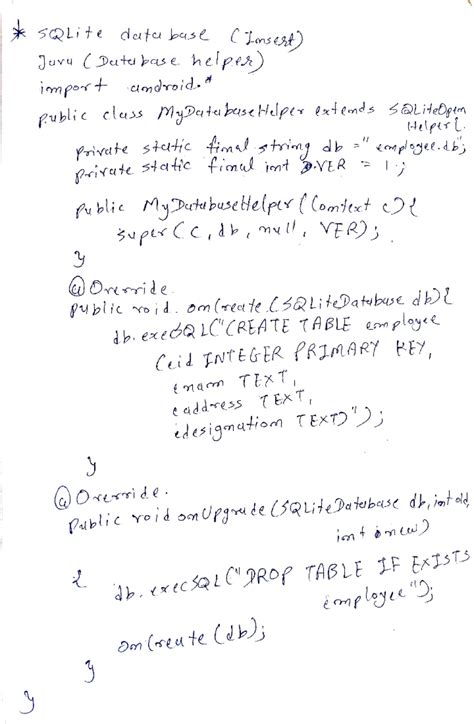 * SQLite database (Insert)
Java (Database helper)
import android.*
public class MyDatabaseHelper extends SQLiteOpen
Helper{
private static final string db = "employee.db";
private static final int VER = 1;
public MyDatabaseHelper(Context c){
super(c, db, null, VER);
}
@Override.
public void onCreate(SQLiteDatabase db){
db.execSQL("CREATE TABLE employee
(eid INTEGER PRIMARY KEY,
enam TEXT,
eaddress TEXT,
edesignation TEXT)");
}
@Override.
public void onUpgrade(SQLiteDatabase db, int old,
int new)
{
db.execSQL("DROP TABLE IF EXISTS
employee");
onCreate(db);
}
}